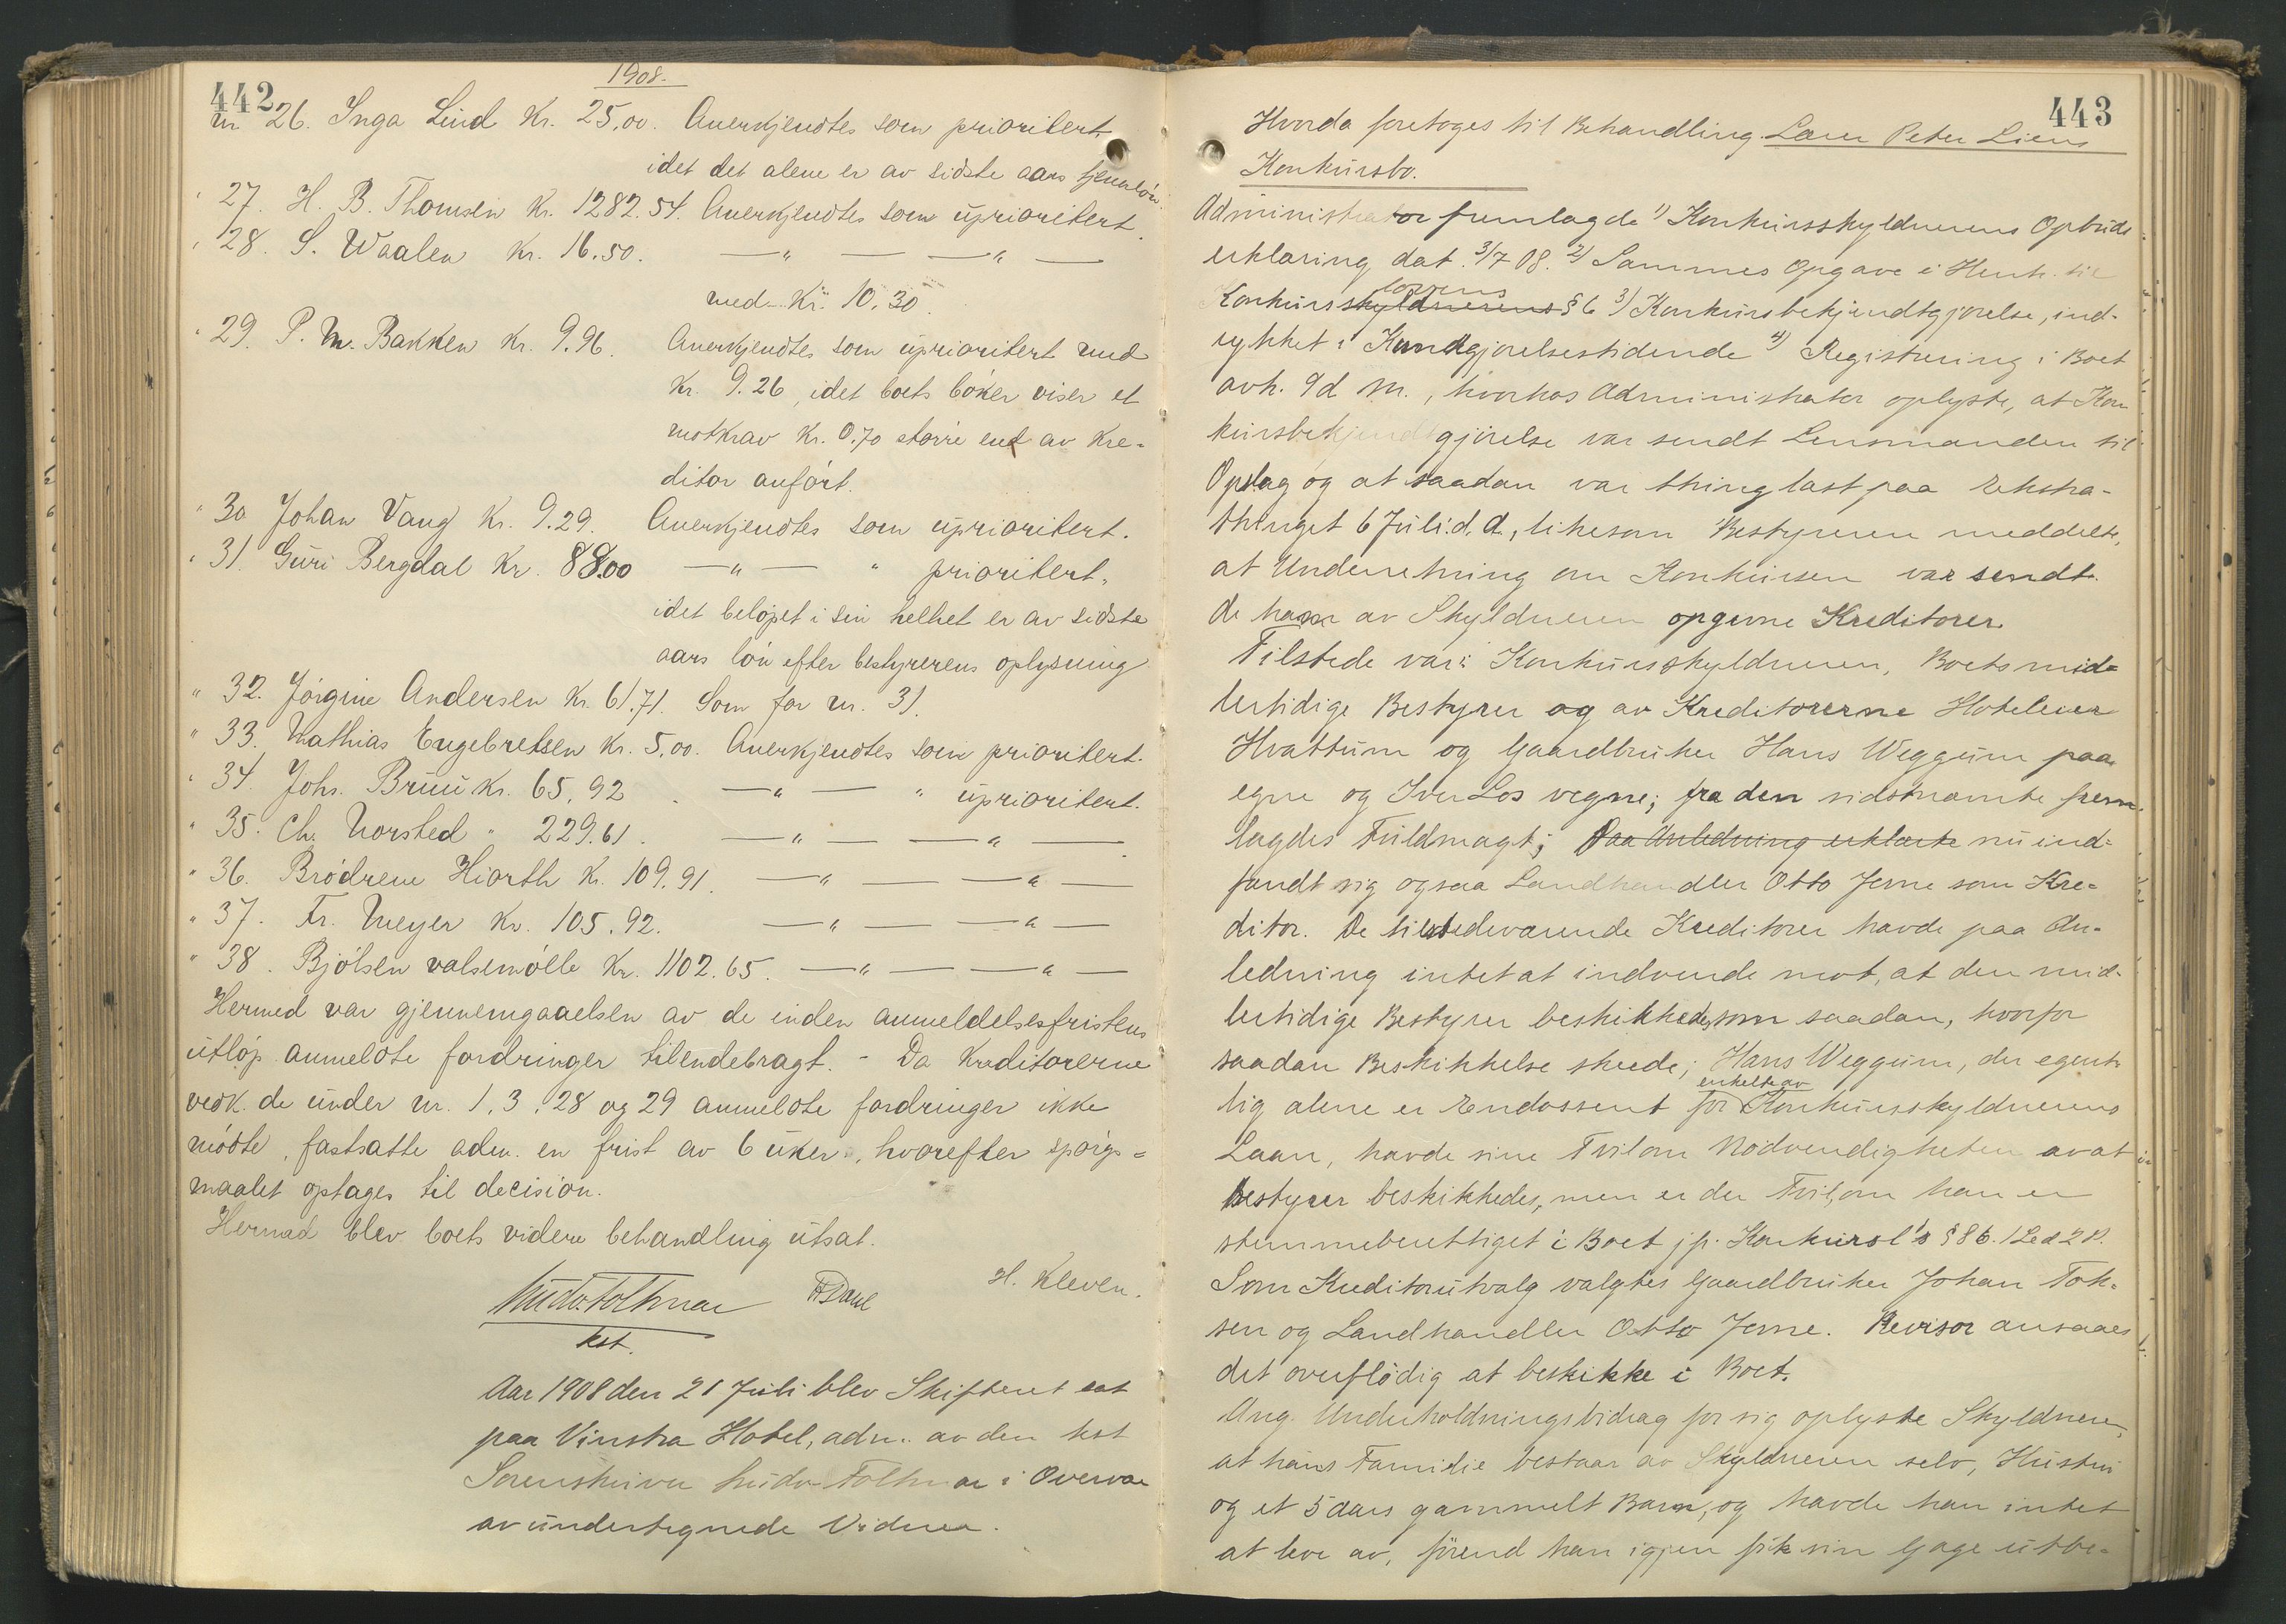 442
1908.
nr 26. Inga Lind Kr. 25,00. Anerkjendtes som prioritert,
idet det alene er av sidste aars tjenerløn.
" 27. H. B. Thomsen Kr. 1282.54. Anerkjendtes som uprioritert.
" 28. S. Waalen Kr. 16.50. —"— —"—
med Kr. 10.30.
" 29. P. M. Bakken Kr. 9.96. Anerkjendtes som uprioritert med
Kr. 9.26, idet boets bøker viser et
motkrav Kr. 0.70 større end av kre-
ditor anført.
" 30 Johan Vang Kr. 9.29. Anerkjendtes som uprioritert.
" 31. Guri Bergdal Kr. 88.00 —"— " prioritert,
idet beløpet i sin helhet er av sidste
aars løn efter bestyrerens oplysning
" 32. Jørgine Andersen Kr. 61.71. Som for nr. 31.
" 33. Mathias Engebretsen Kr. 5,00. Anerkjendtes som prioritert.
" 34. Johs. Bruu Kr. 65,92 . —"— " uprioritert.
" 35. Ch. Norsted " 229.61. —"— —"—
" 36. Brødrene Hiorth Kr. 109,91. —"— —"—
" 37. Fr. Meyer Kr. 105,92. —"— —"—
" 38. Bjølsen valsemølle Kr. 1102.65. —"— —"—
Hermed var gjennemgaaelsen av de inden anmeldelsesfristens
utløp anmeldte fordringer tilendebragt. - Da kreditorerne
vedk. de under nr. 1, 3, 28 og 29 anmeldte fordringer ikke
mødte, fastsatte adm. en frist av 6 uker, hvorefter spørgs=
maalet optages til decision.
Hermed blev boets videre behandling utsat.
H. Kleven.
kst.
Aar 1908 den 21 Juli blev Skifteret sat
paa Vinstra Hotel, adm. av den kst
Sorenskriver Ludv. Tolhnar i Overvær
av undertegnede Vidner.
443
Hvorda foretoges til Behandling Lars Peter Liens
Konkursbo.
Administrator fremlagde 1) Konkursskyldnerens Opbuds
erklæring dat. 3/7 08. 2) Sammes Opgave i Henh. til
lovens
Konkursskyldnerens § 6 3) Konkursbekjendtgjørelse, ind-
rykket i Kundgjørelsestidende 4) Registrering i Boet
avh. 9d M., hvorhos Administrator oplyste, at Kon
kursbekjendtgjørelse var sendt Lensmanden til
Opslag og at saadan var thinglæst paa Ekstra-
thinget 6 Juli d. A., likesom Bestyreren meddelte,
at Underretning om Konkursen var sendt
de ham av Skyldneren opgivne Kreditorer.
Tilstede var: Konkursskyldneren, Boets mid=
lertidige Bestyrer og av Kreditorerne Hoteleier
Hvattum og Gaardbruker Hans Weggum paa
egne og Iver Los vegne; fra den sidstnævnte frem-
lagdes Fuldmagt; Paa Anledning erklærte nu ind=
fandt sig ogsaa Landhandler Otto Jerne som Kre=
ditor. De tilstedeværende Kreditorer havde paa An-
ledning intet at indvende mot, at den mid-
lertidige Bestyrer beskikkedes som saadan, hvorfor
saadan Beskikkelse skeede; Hans Weggum, der egent-
enkelte av
lig alene er Endossent for Konkursskyldnerens
Laan, havde sine Tvil om Nødvendigheten av at
Bestyrer beskikkedes, men er der Tvil, om han er
stemmeberettiget i Boet jfr. Konkursl's § 86. 1 Led 2 P.
Som Kreditorutvalg valgtes Gaardbruker Johan Tok-
sen og Landhandler Otto Jerne. Revisor ansaaes
det overflødig at beskikke i Boet.
Ang. Underholdningsbidrag for sig oplyste Skyldneren,
at hans Familie bestaar av Skyldneren selv, Hustru
og et 5 aars gammelt Barn, og havde han intet
at leve av, førend han igjen fik sin Gage utbe-